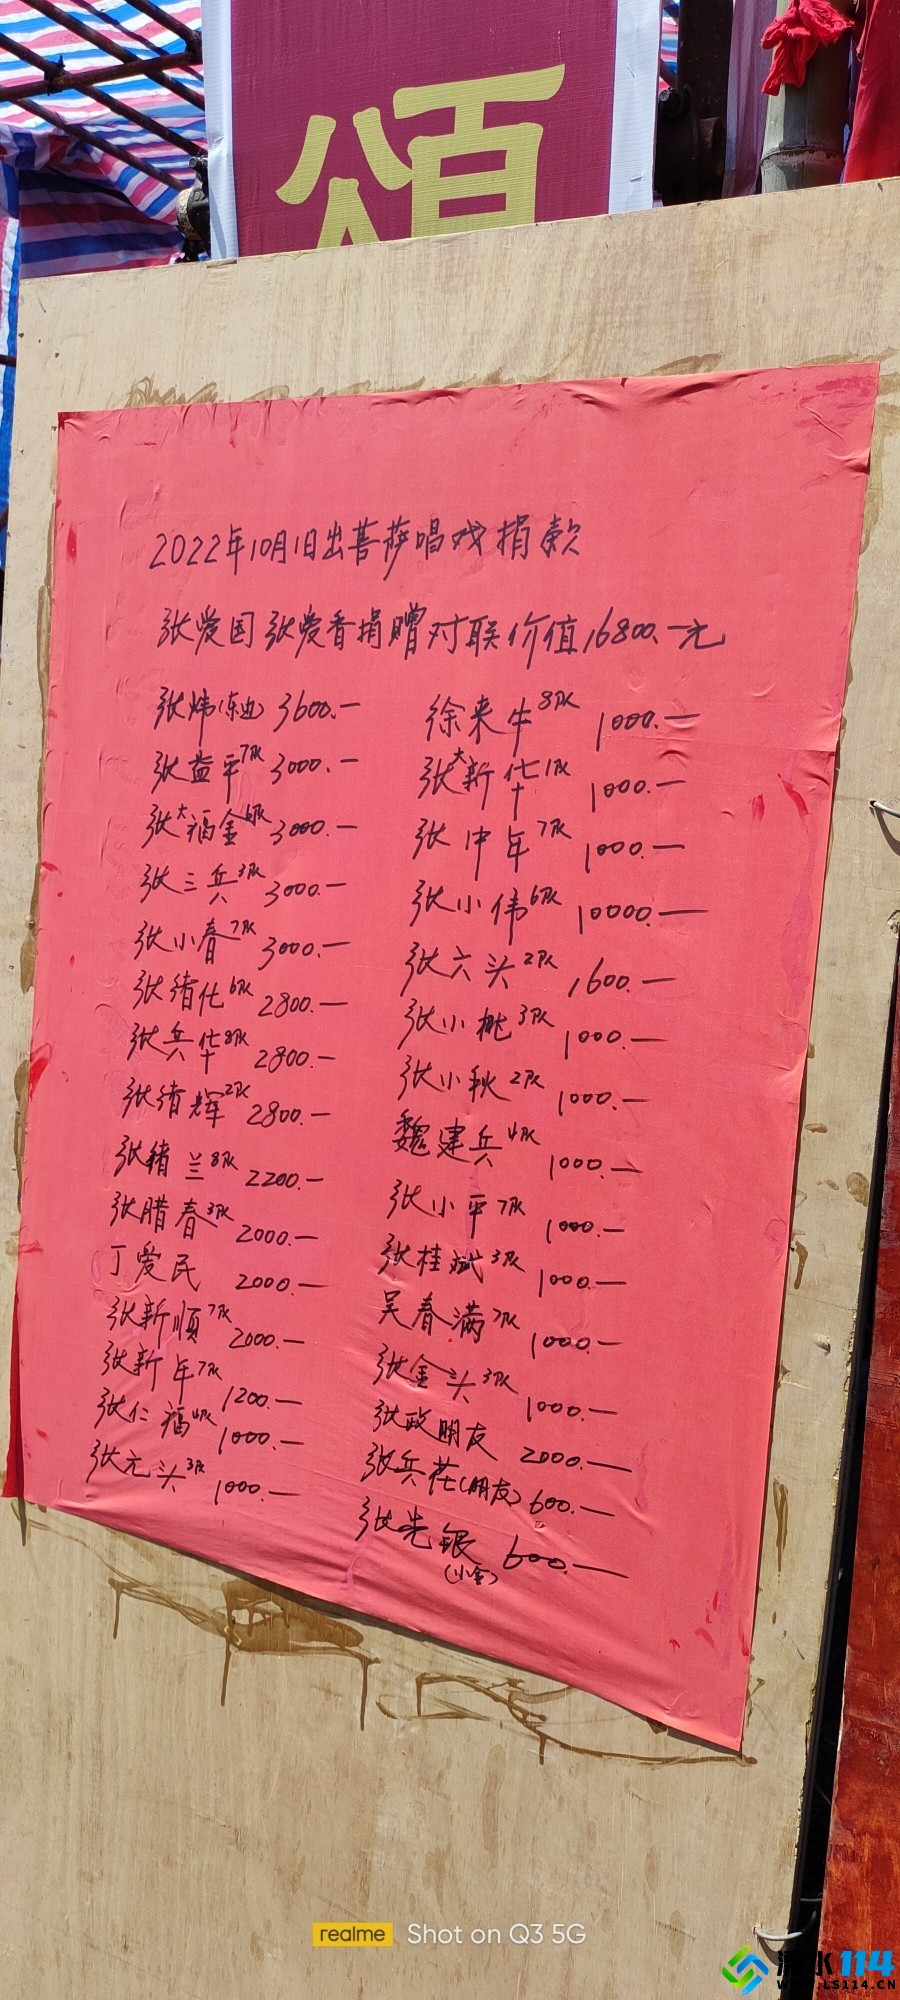 頌
2022年10月1日出菩萨唱戏捐款
张爱国 张爱香捐赠对联价值16800.一元
张炜(东边) 3600.一
张益平7队 3000.一
张大福金6队 3000.一
张三兵3队 3000.一
张小春7队 3000.一
张绪化6队 2800.一
张兵华8队 2800.一
张绪辉2队 2800.一
张绪兰8队 2200.一
张腊春3队 2000.一
丁爱民 2000.一
张新顺7队 2000.一
张新年7队 1200.一
张仁福4队 1000.一
张元头3队 1000.一
徐来牛8队 1000.一
张大新华1队 1000.一
张中年7队 1000.一
张小伟6队 10000.一
张六头2队 1600.一
张小桃3队 1000.一
张小秋2队 1000.一
魏建兵4队 1000.一
张小平7队 1000.一
张桂斌3队 1000.一
吴春满7队 1000.一
张金头3队 1000.一
张政朋友 2000.一
张兵花(朋友) 600.一
张先银 600.一
(小金)
realme Shot on Q3 5G
水114
WWW.LS114.CN